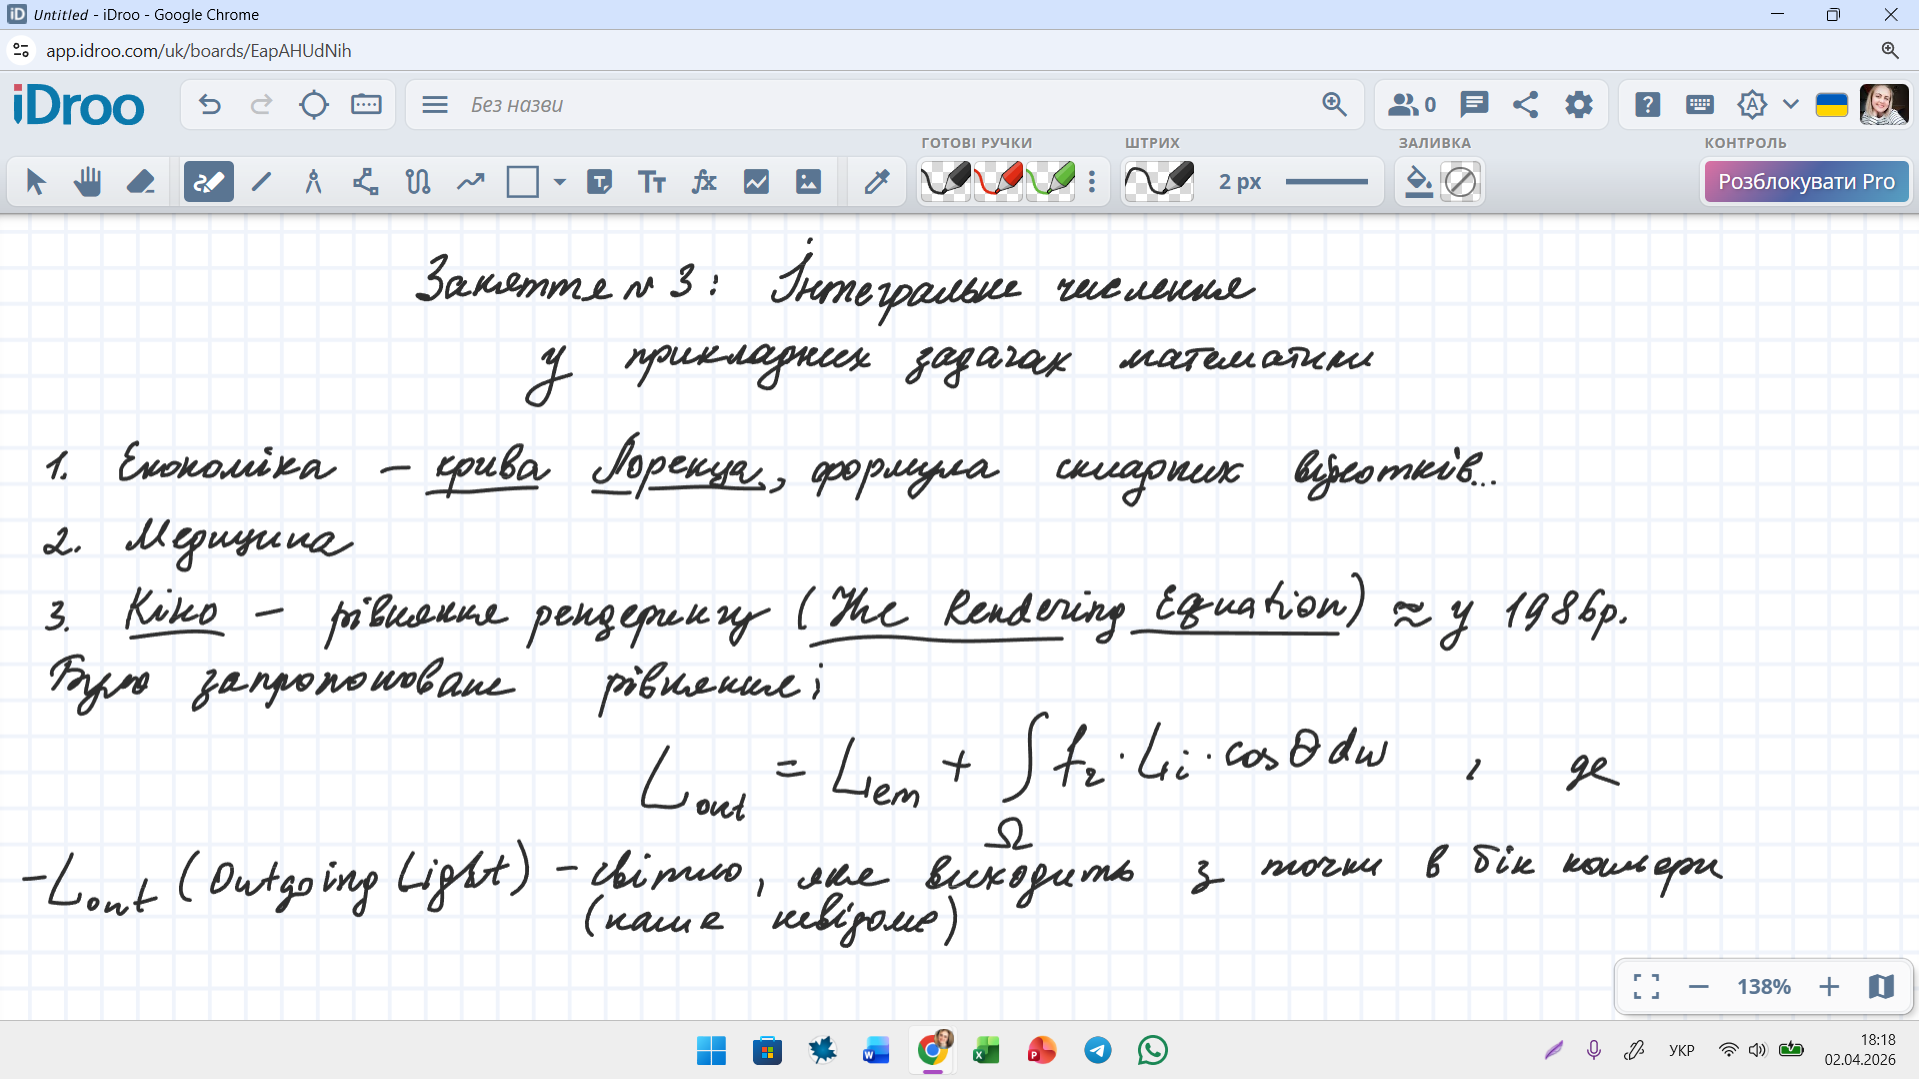 Untitled - iDroo - Google Chrome
app.idroo.com/uk/boards/EapAHUdNih
iDroo
Без назви
0
ГОТОВІ РУЧКИ
ШТРИХ
ЗАЛИВКА
КОНТРОЛЬ
2 px
Розблокувати Pro
Заняття № 3: Інтегральне числення
у прикладних задачах математики
1. Економіка – крива Лоренца, формула складних відсотків...
2. Медицина
3. Кіно – рівняння рендерингу (The Rendering Equation) ≈ у 1986р.
Було запропоноване рівняння:
L_out = L_em + ∫_Ω f_r · L_i · cos θ dw , де
- L_out (Outgoing Light) – світло, яке виходить з точки в бік камери
(наше невідоме)
138%
УКР
18:18
02.04.2026